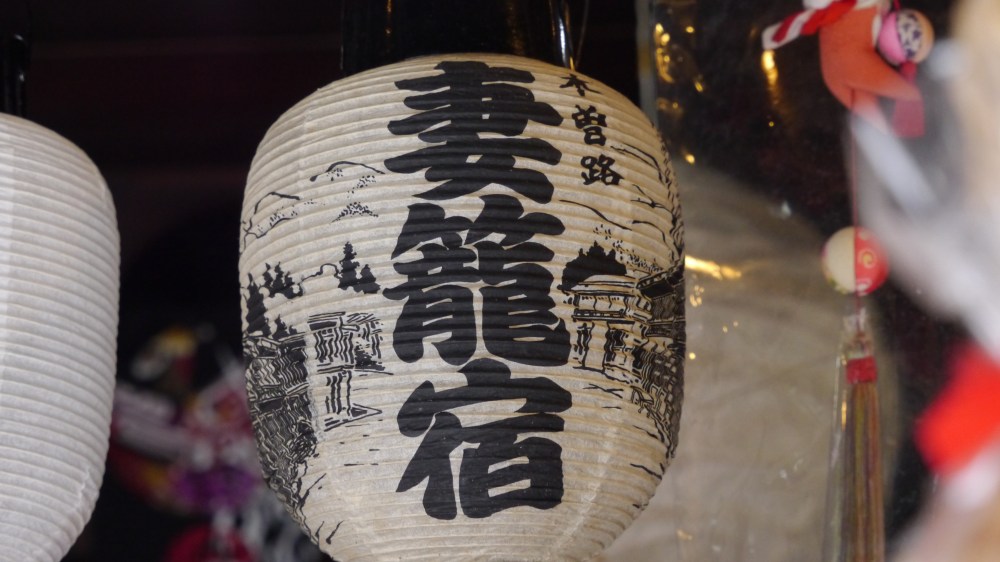 木曽路
妻籠宿